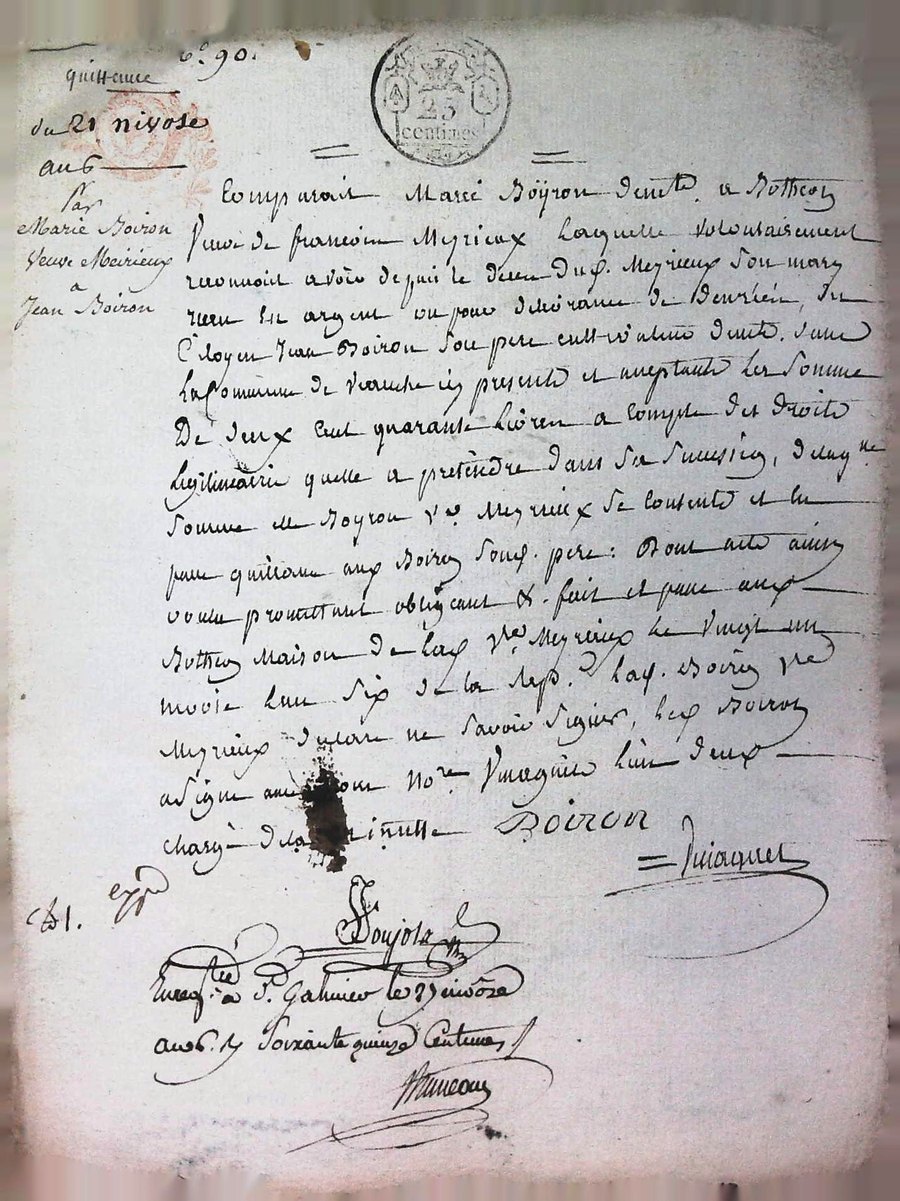 C° 90.
quittance
du 21 nivose
an 6
Par
Marie Boiron
Veuve Meirieux
a
Jean Boiron
25
centimes
Comparait Marie Boÿron demt. a Botheon
Veuve de francois Meyrieux Laquelle volontairement
reconnoit avoir depuis le deces dud. Meyrieux Son mary
recu En argent ou pour delivrance de Denrées, du
Citoyen Jean Boiron Son pere cultivateur demt. dans
La Commune de Veauche icy present et acceptant Les Somme
De deux Cent quarante Livres a Compte des droits
Legitimaires quelle a pretendre dans Sa Succession, de laq.lle
Somme elle Boyron v.e Meyrieux Se Contente et en
passe quittance aud Boiron Sond. pere: Dont acte ainsy
voulu promettant obligeant &. fait et passé aud
Botheon Maison de Lad V.ve Meyrieux Le Vingt un
nivose Lan Six de la Rep.e Lad. Boiron v.ve
Meyrieux declare ne Savoir Signer, Led Boiron
a Signe avec No.re Lun deux
chargé de la minutte Boiron
exp.é
Goujota
Enreg.tré a S.t Galmier le nivôse
an 6. Soixante quinze Centimes